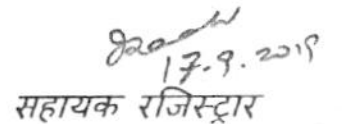 17.9.2019
सहायक रजिस्ट्रार